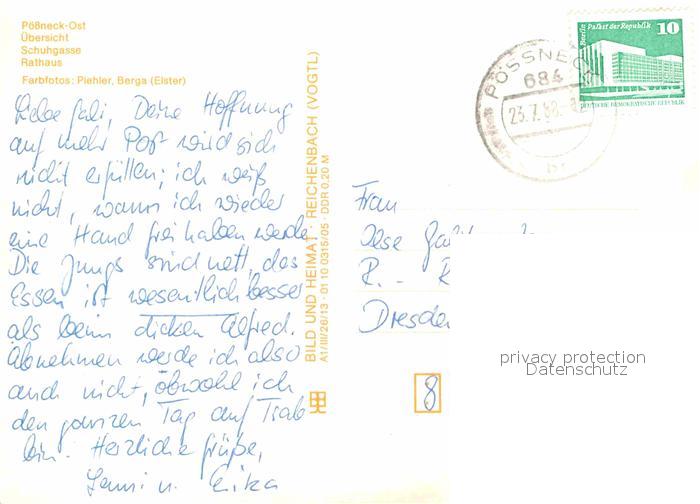 Pößneck-Ost
Übersicht
Schuhgasse
Rathaus
Farbfotos: Piehler, Berga (Elster)
Liebe Gabi, Deine Hoffnung
auf mehr Post wird sich
nicht erfüllen; ich weiß
nicht, wann ich wieder
eine Hand frei haben werde
Die Jungs sind nett, das
Essen ist wesentlich besser
als beim dicken Alfred.
Abnehmen werde ich also
auch nicht, obwohl ich
den ganzen Tag auf Trab
bin. Herzliche Grüße,
u. Eika
BILD UND HEIMAT · REICHENBACH (VOGTL)
A1/III/26/13 · 01 10 0315/05 · DDR 0,20 M
PÖSSNECK
684
23.7.88
Berlin Palast der Republik
10
DEUTSCHE DEMOKRATISCHE REPUBLIK
Frau
Ilse
R. - R
Dresden
8
privacy protection
Datenschutz